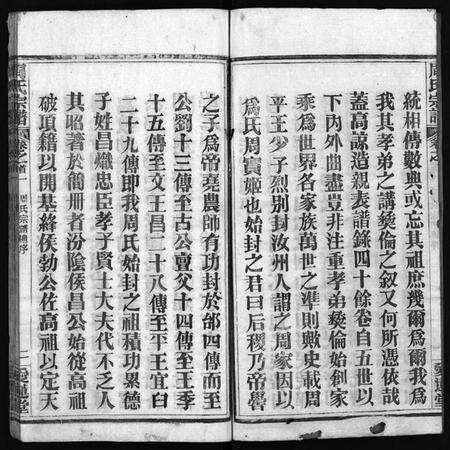 統相傳數典或忘其祖庶幾爾爲爾我爲
我其孝弟之講獘倫之叙又何所憑依哉
蓋高諒造親表譜錄四十餘卷自五世以
下內外曲盡豈非注重孝弟獘倫始創家
乘爲世界各家族萬世之準則歟史載周
平王少子烈別封汝州人謂之周家因以
爲氏周實姬也始封之君曰后稷乃帝嚳
之子爲帝堯農師有功封於邰四傳而至
公劉十三傳至古公亶父十四傳至王季
十五傳至文王昌二十八傳至平王宜臼
二十九傳即我周氏始封之祖積功累德
子姓昌熾忠臣孝子賢士大夫代不乏人
其昭著於簡冊者汾陰侯昌公始從高祖
破項籍以開基絳侯勃公佐高祖以定天
周氏宗譜 卷之首
周氏宗譜總序
二
愛蓮堂